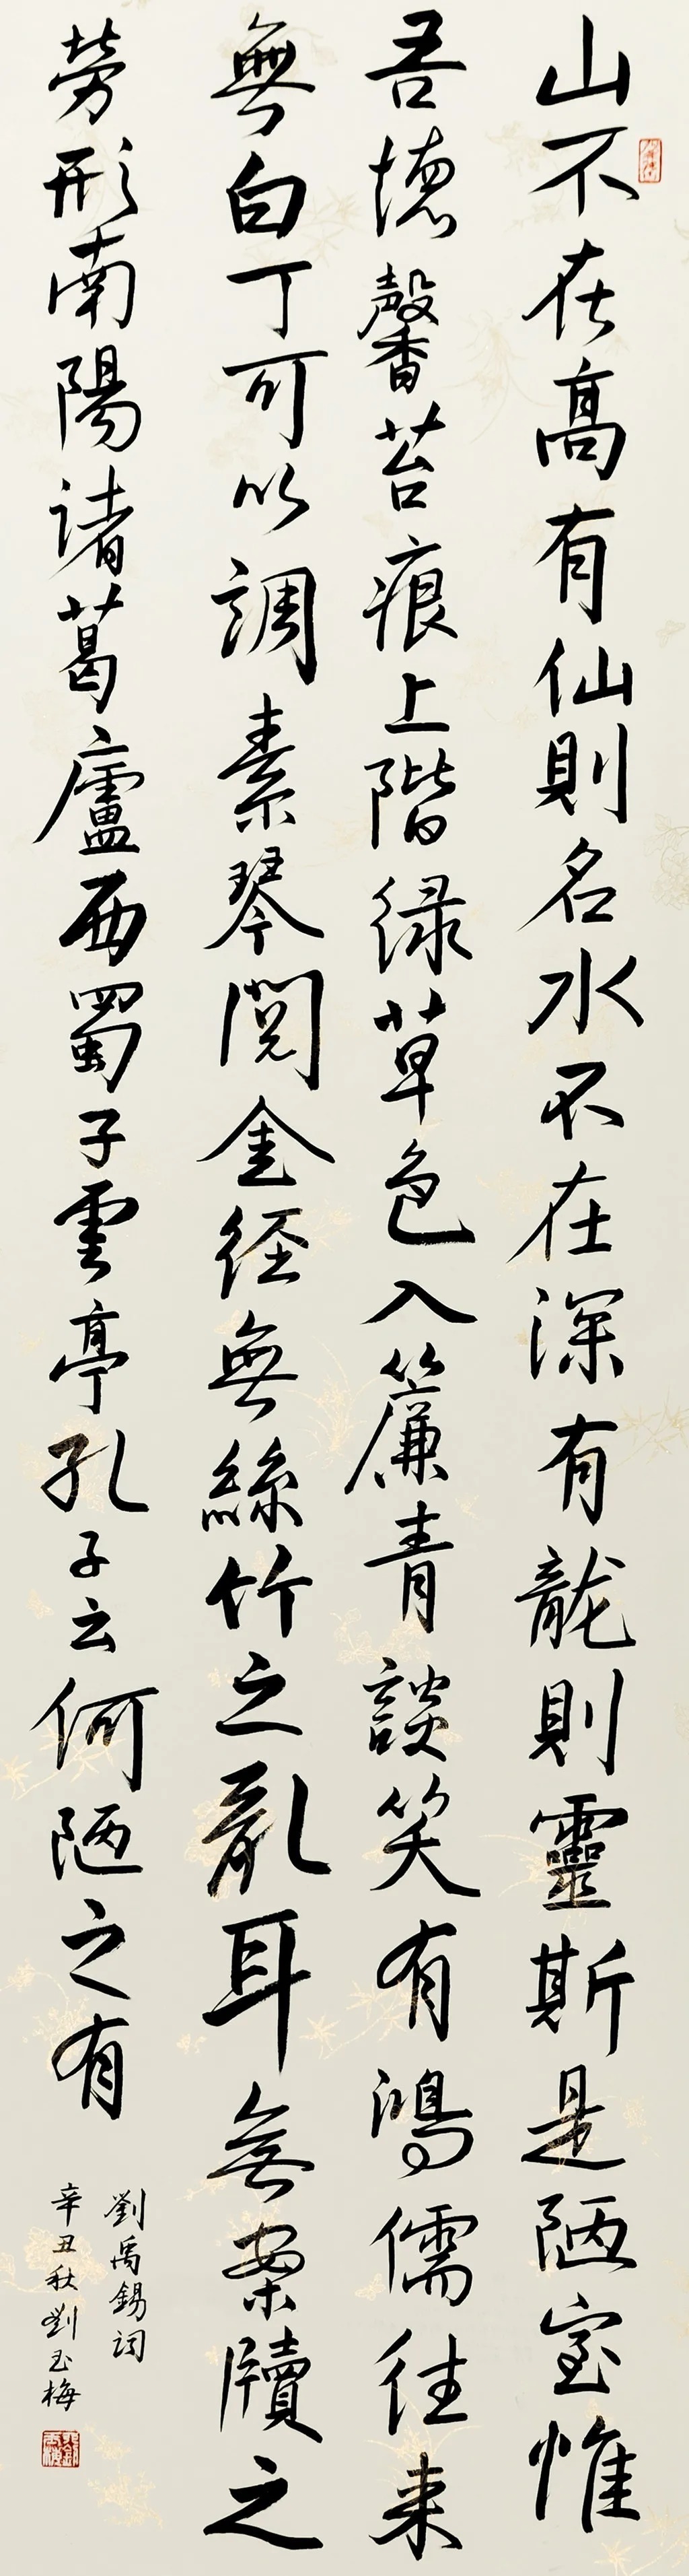 山不在高有仙則名水不在深有龍則靈斯是陋室惟
吾德馨苔痕上階緑草色入簾青談笑有鴻儒往来
無白丁可以調素琴閲金経無絲竹之亂耳無案牘之
勞形南陽諸葛廬西蜀子雲亭孔子云何陋之有
劉禹錫詞
辛丑秋劉玉梅